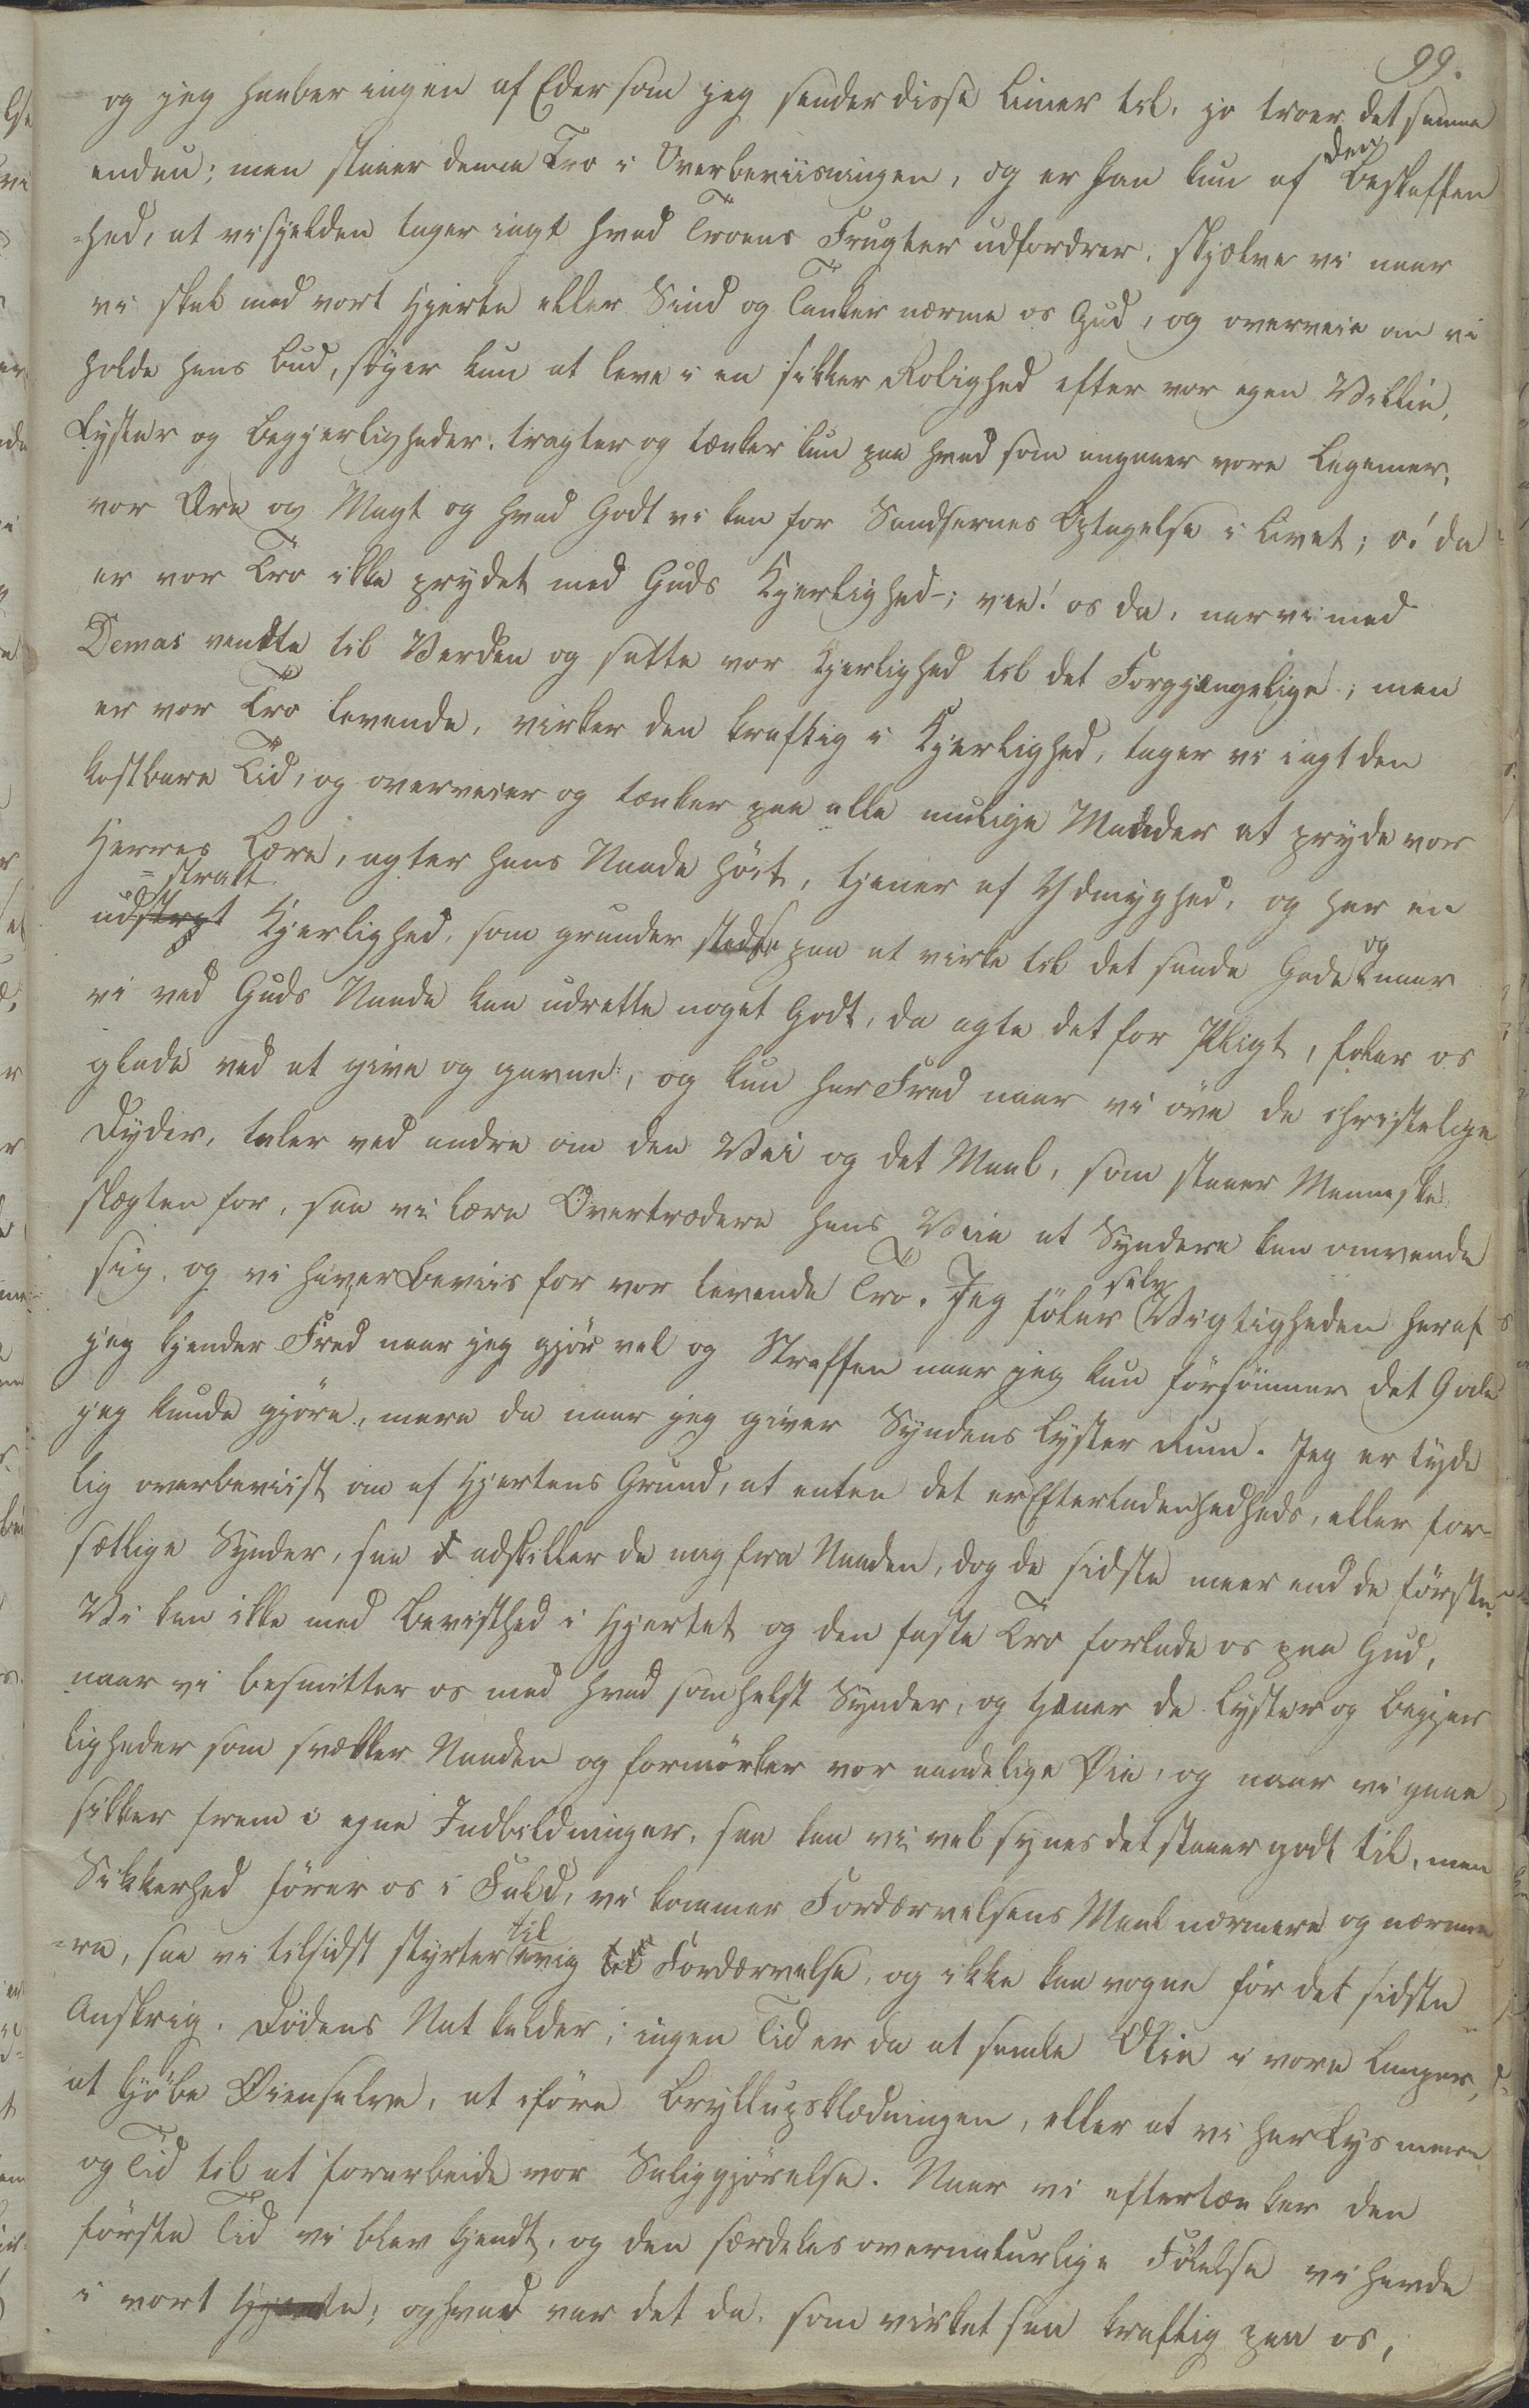 99.
og jeg haaber ingen af Eder som jeg sender disse Linier til, jo troer det samme
endnu; men staaer denne Tro i Overbeviisningen, og er han kun af den Beskaffen
=hed, at vi sjelden tager iagt hvad Troens Frugter udfordrer, skjælve vi naar
vi skal med vort Hjerte eller Sind og Tanker nærme os Gud, og overveie om vi
holde hans Bud, søger kun at leve i en sikker Rolighed efter vor egen Villie,
Lyster og Begjerligheder, tragter og tænker kun paa hvad som angaaer vore Legemer,
vor Ære og Magt og hvad Godt vi kan for Sandsernes Optagelse i Livet; o! da
er vor Tro ikke prydet med Guds Kjerlighed-; vee! os da, nar vi med
Demas vendte til Verden og satte vor Kjerlighed til det Forgjængelige; men
er vor Tro levende, virker den kraftig i Kjerlighed, tager vi iagt den
kostbare Tid, og overveier og tænker paa alle mulige Maader at pryde vor
Herres Lære, agter hans Naade høit, tjener af Ydmyghed, og har en
=strakt
udstrgt Kjerlighed, som grunder stedse paa at virke til det sande Gode og naar
vi ved Guds Naade kan udrette noget Godt, da agte det for Pligt, føler os
glade ved at give og gavne, og kun har Fred naar vi øve de christelige
Dyder, taler ved andre om den Vei og det Maal, som staaer Menneske
slægten for, saa vi lære Overtrædere hans Veie at Syndere kan omvende
sig, og vi haver Beviis for vor levende Tro. Jeg føler selv Vigtigheden heraf
jeg kjender Fred naar jeg gjør vel og Straffen naar jeg kun forsømmer det Gode
jeg kunde gjøre, mere da naar jeg giver Syndens Lyster Rum. Jeg er tyde
lig overbeviist om af Hjertens Grund, at enten det er Efterladenhedheds, eller for-
sætlige Synder, saa adskiller de mig fra Naaden, dog de sidste meer end de første.
Vi kan ikke med Bevisthed i Hjertet og den faste Tro forlade os paa Gud,
naar vi besmitter os med hvad somhelst Synder, og tjener de Lyster og Begjer
ligheder som svækker Aanden og formørker vor aandelige Øie, og naar vi gaae
sikker frem i egne Indbildninger, saa kan vi vel synes det staaer godt til, men
Sikkerhed fører os i Fald, vi kommer Fordærvelsens Maal nærmere og nærme
=re, saa vi tilsidst styrter til evig til Fordærvelse, og ikke kan vogne før det sidste
Anskrig. Dødens Nat kalder; ingen Tid er da at samle Olie i vore Lamper,
at kjøbe Øiensalve, at iføre Bryllupsklædningen, eller at vi har Lys mere
og Tid til at forarbeide vor Saliggjørelse. Naar vi eftertænker den
første Tid vi blev kjendt, og den særdeles overnaturlige Følelse vi havde
i vort Hjerte; og hvad var det da, som virket saa kraftig paa os,